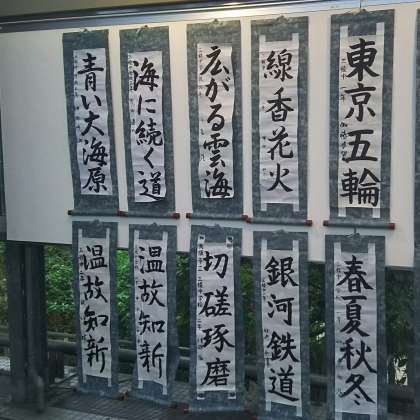 青い大海原
海に続く道
広がる雲海
線香花火
東京五輪
温故知新
温故知新
切磋琢磨
銀河鉄道
春夏秋冬